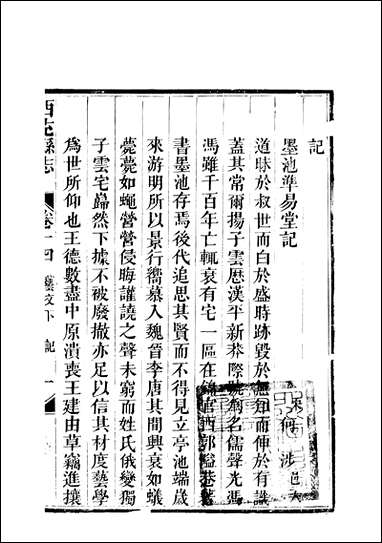 記
墨池準易堂記
何涉
道昧於叔世而白於盛時跡毀於無知而伸於有識
蓋其常爾揚子雲歷漢平新莽際號名儒聲光馮
馮雖千百年亡輒衰有宅一區在錦官西郭隘巷著
書墨池存焉後代追思其賢而不得見立亭池端歲
來游明所以景行嚮慕入魏晉李唐其間興衰如蟻
薨薨如蠅營營侵晦讙譊之聲未窮而姓氏俄變獨
子雲宅巋然下據不被廢撤亦足以信其材度藝學
為世所仰也王德數盡中原潰喪王建由草竊進攘
西充縣志
卷十四
藝文下
記
一